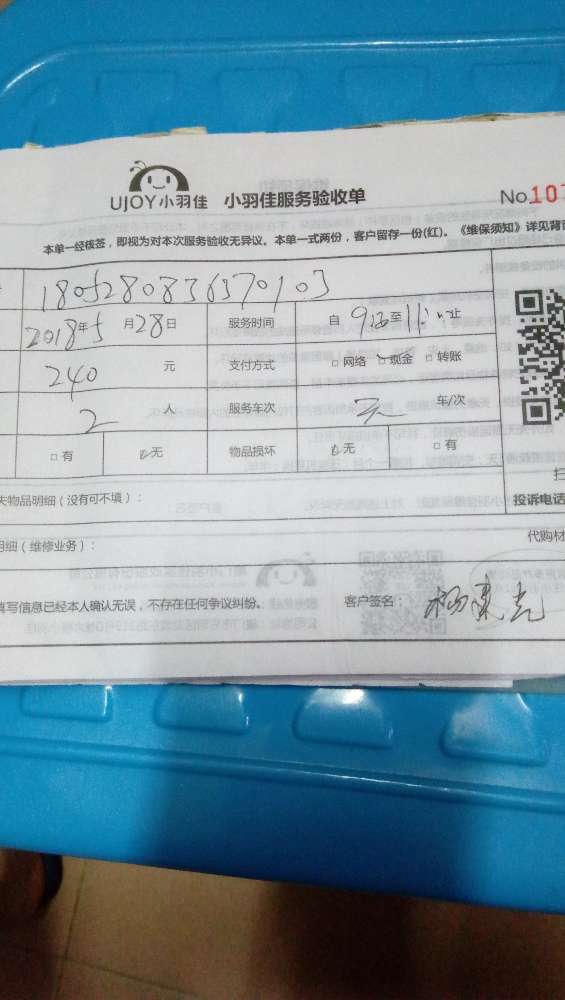 UJOY小羽佳 小羽佳服务验收单 No.107
本单一经核签，即视为对本次服务验收无异议。本单一式两份，客户留存一份(红)。《维保须知》详见背面
1805280836370103
2018年5月28日 服务时间 自 至 止
240 元 支付方式 □网络 □现金 □转账
2 人 服务车次 车/次
□有 □无 物品损坏 □无 □有
失物品明细（没有可不填）： 投诉电话
明细（维修业务）： 代购材
填写信息已经本人确认无误，不存在任何争议纠纷。 客户签名：